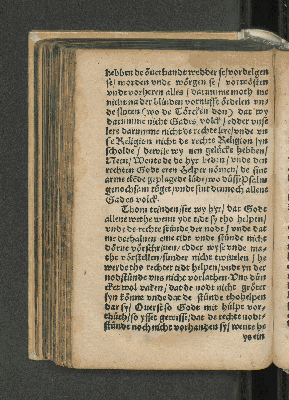 hebben de överhandt wedder se/ vordelgen
se/ morden vnde wörgen se/ vorwösten
vnde vorheren alles / darumme moth me
nicht na der blinden vornufft ördelen vn-
de sluten (wo de Törcken don) dat wy
darumme nicht Gades volck / edder vnse
lere darumme nicht de rechte lere/ vnde vn
se Religion nicht de rechte Religion syn
scholde / derwile wy nen gelücke hebben/
Neen/ Wente de de hyr leden / vnde den
rechten Godt eren Helper nömen/ de sint
arme elende geplagede lüde/ wo düsse Psalm
genochsam töget/ vnde sint dennoch allene
Gades volck.
Thom drüdden/ see wy hyr/ dat Godt
allene wethe wenn yde tidt sy tho helpen/
vnde de rechte stünde der nodt / vnde dat
me derhaluen eme tidt vnde stünde nicht
döre vörschriuen/ edder wyse vnde ma-
the vörstellen/ sünder nicht twiuelen / he
werde tho rechter tidt helpen/ vnde yn der
nodtstünde vns nicht vorlathen. Vns dün-
cket wol vaken/ dat de nodt nicht gröter
syn könne vnde dat de stünde tho helpen
dar sy/ Ouerst so Godt mit hülpe vor-
thüth/ so ysset gewisse/ dat de rechte nodt-
stünde noch nicht vorhanden sy/ wente he
ys ein